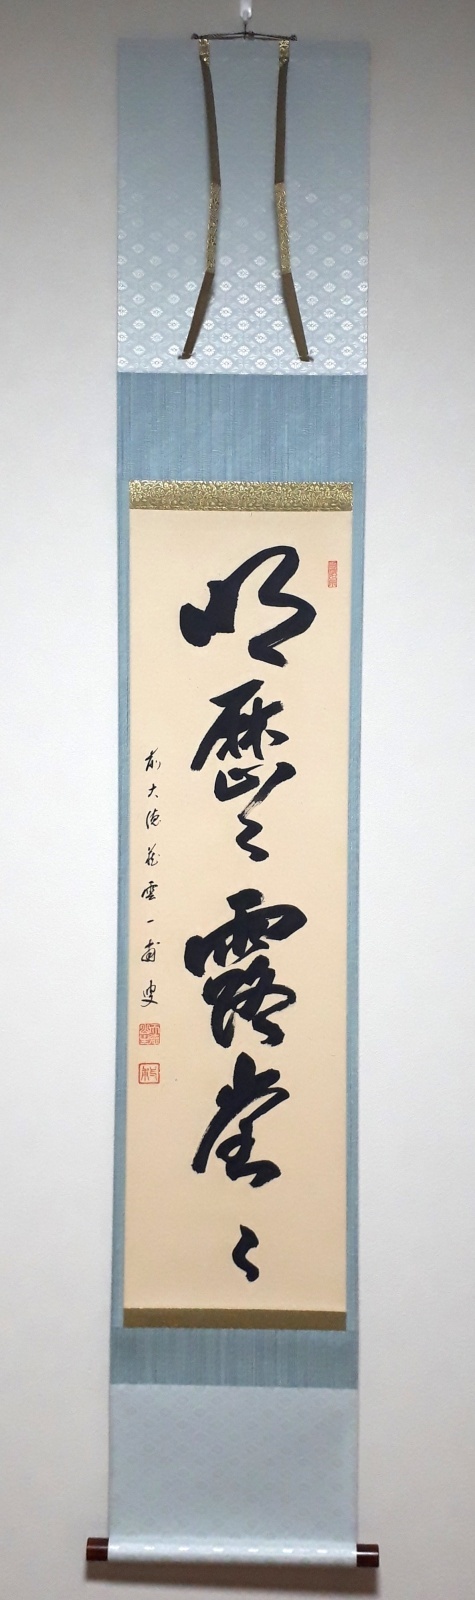 明歴々露堂々
前大徳 藤雲一甫叟